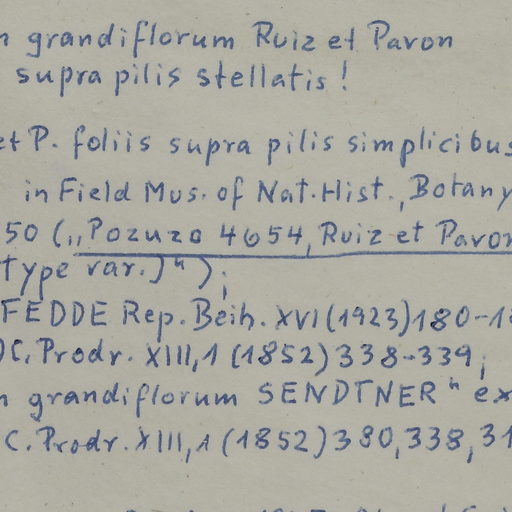 n grandiflorum Ruiz et Pavon
supra pilis stellatis!
et P. foliis supra pilis simplicibus
in Field Mus. of Nat. Hist., Botany
50 („Pozuzo 4654, Ruiz et Pavon
Type var.)");
FEDDE Rep. Beih. XVI (1923) 180-1
DC. Prodr. XIII,1 (1852) 338-339;
n grandiflorum SENDTNER" ex
C. Prodr. XIII,1 (1852) 380, 338, 31